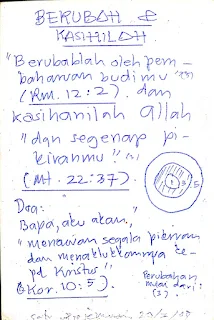 BERUBAH &
KASIHILAH.
"Berubahlah oleh pem-
baharuan budimu"
(Rm. 12:2). dan
kasihanilah Allah
"dan segenap pi-
kiranmu"
(Mt. 22:37).
Doa:
Bapa, aku akan,
"menawan segala pikiran
dan menaklukkannya ke-
pd Kristus"
(2 Kor. 10:5).
Perubahan
mulai dari:
(1).
1 3 5